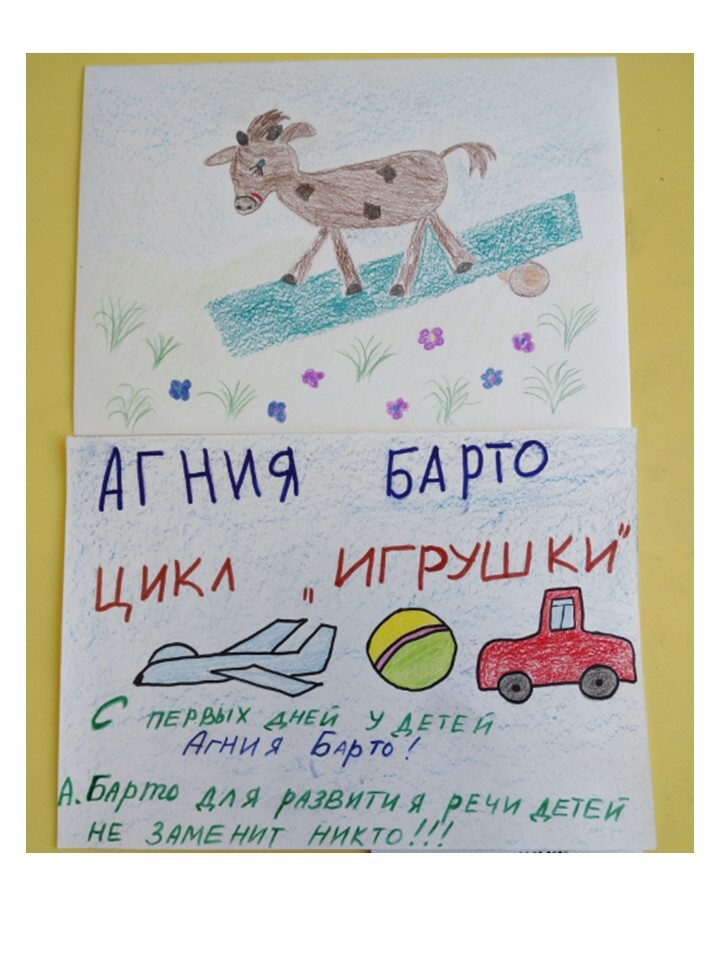 АГНИЯ БАРТО
ЦИКЛ „ИГРУШКИ"
С ПЕРВЫХ ДНЕЙ У ДЕТЕЙ
АГНИЯ БАРТО!
А. БАРТО ДЛЯ РАЗВИТИЯ РЕЧИ ДЕТЕЙ
НЕ ЗАМЕНИТ НИКТО!!!